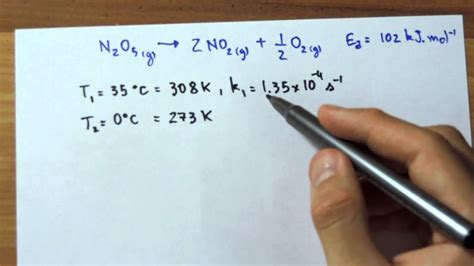 N₂O₅(g) → 2 NO₂(g) + 1/2 O₂(g) Ea = 102 kJ.mol⁻¹
T₁ = 35°C = 308K, k₁ = 1.35 × 10⁻⁴ s⁻¹
T₂ = 0°C = 273K